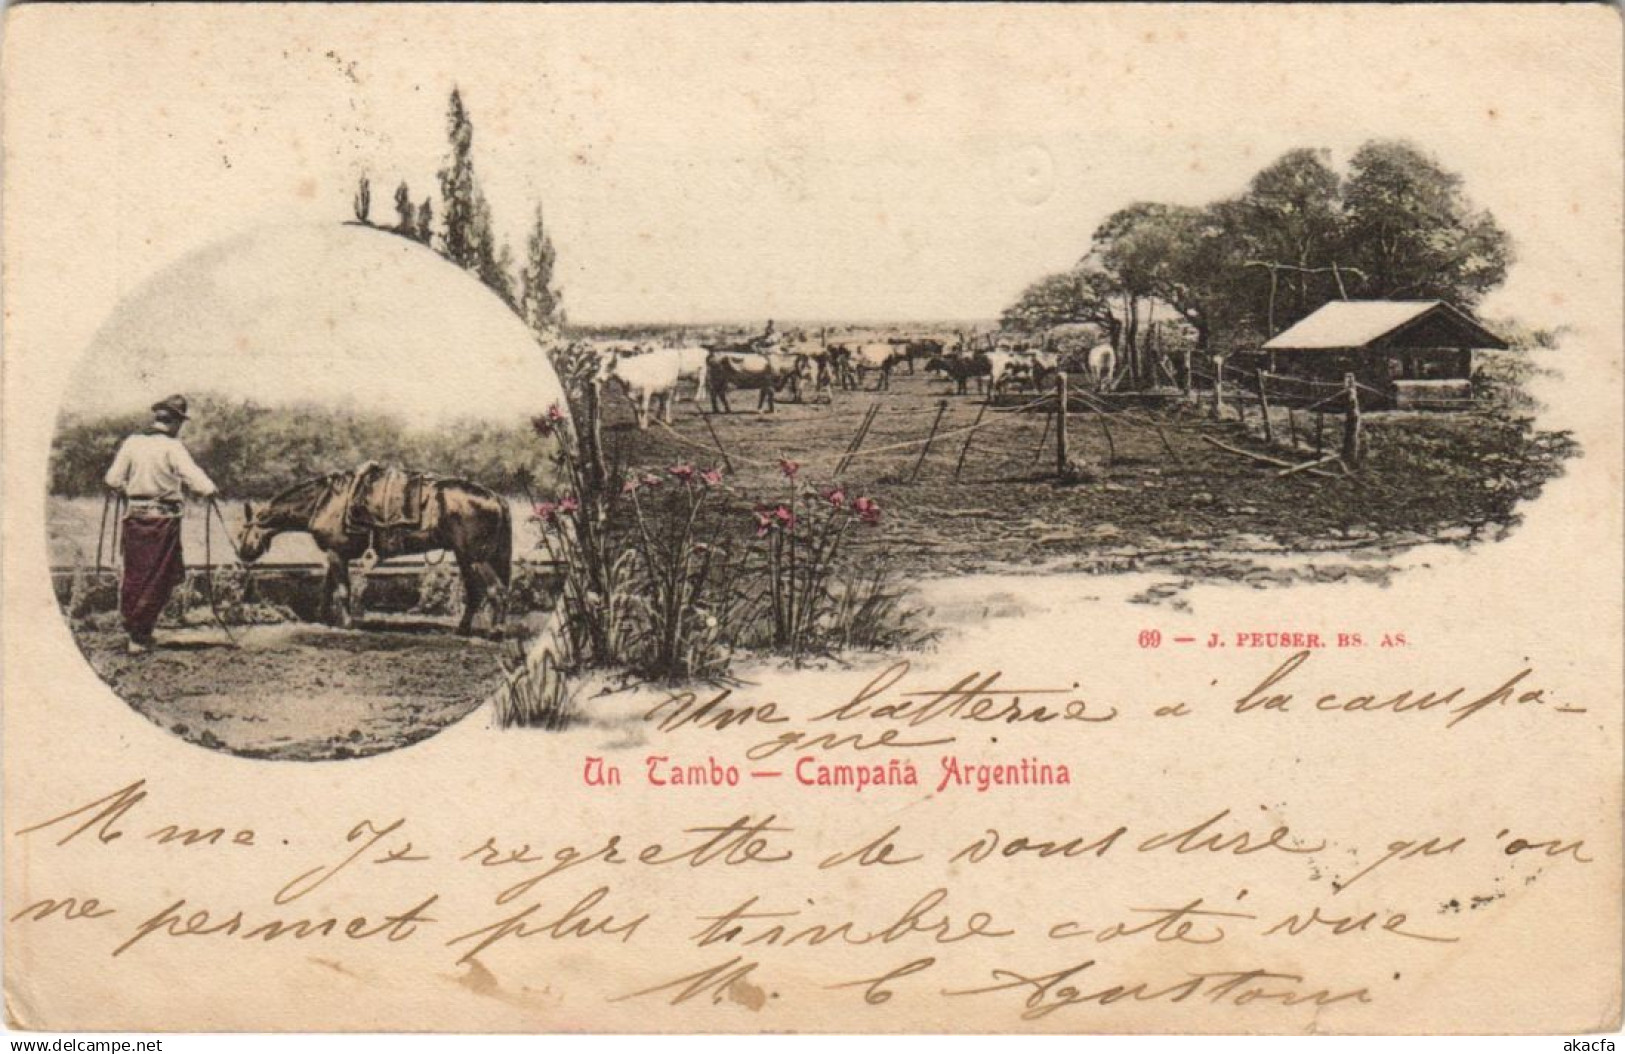 69 — J. PEUSER. BS. AS.
Une latterie à la campa-
gne
Un Tambo — Campaña Argentina
Mme. Je regrette de vous dire qu'on
ne permet plus timbre coté vue
M. C Agustoni
akacfa